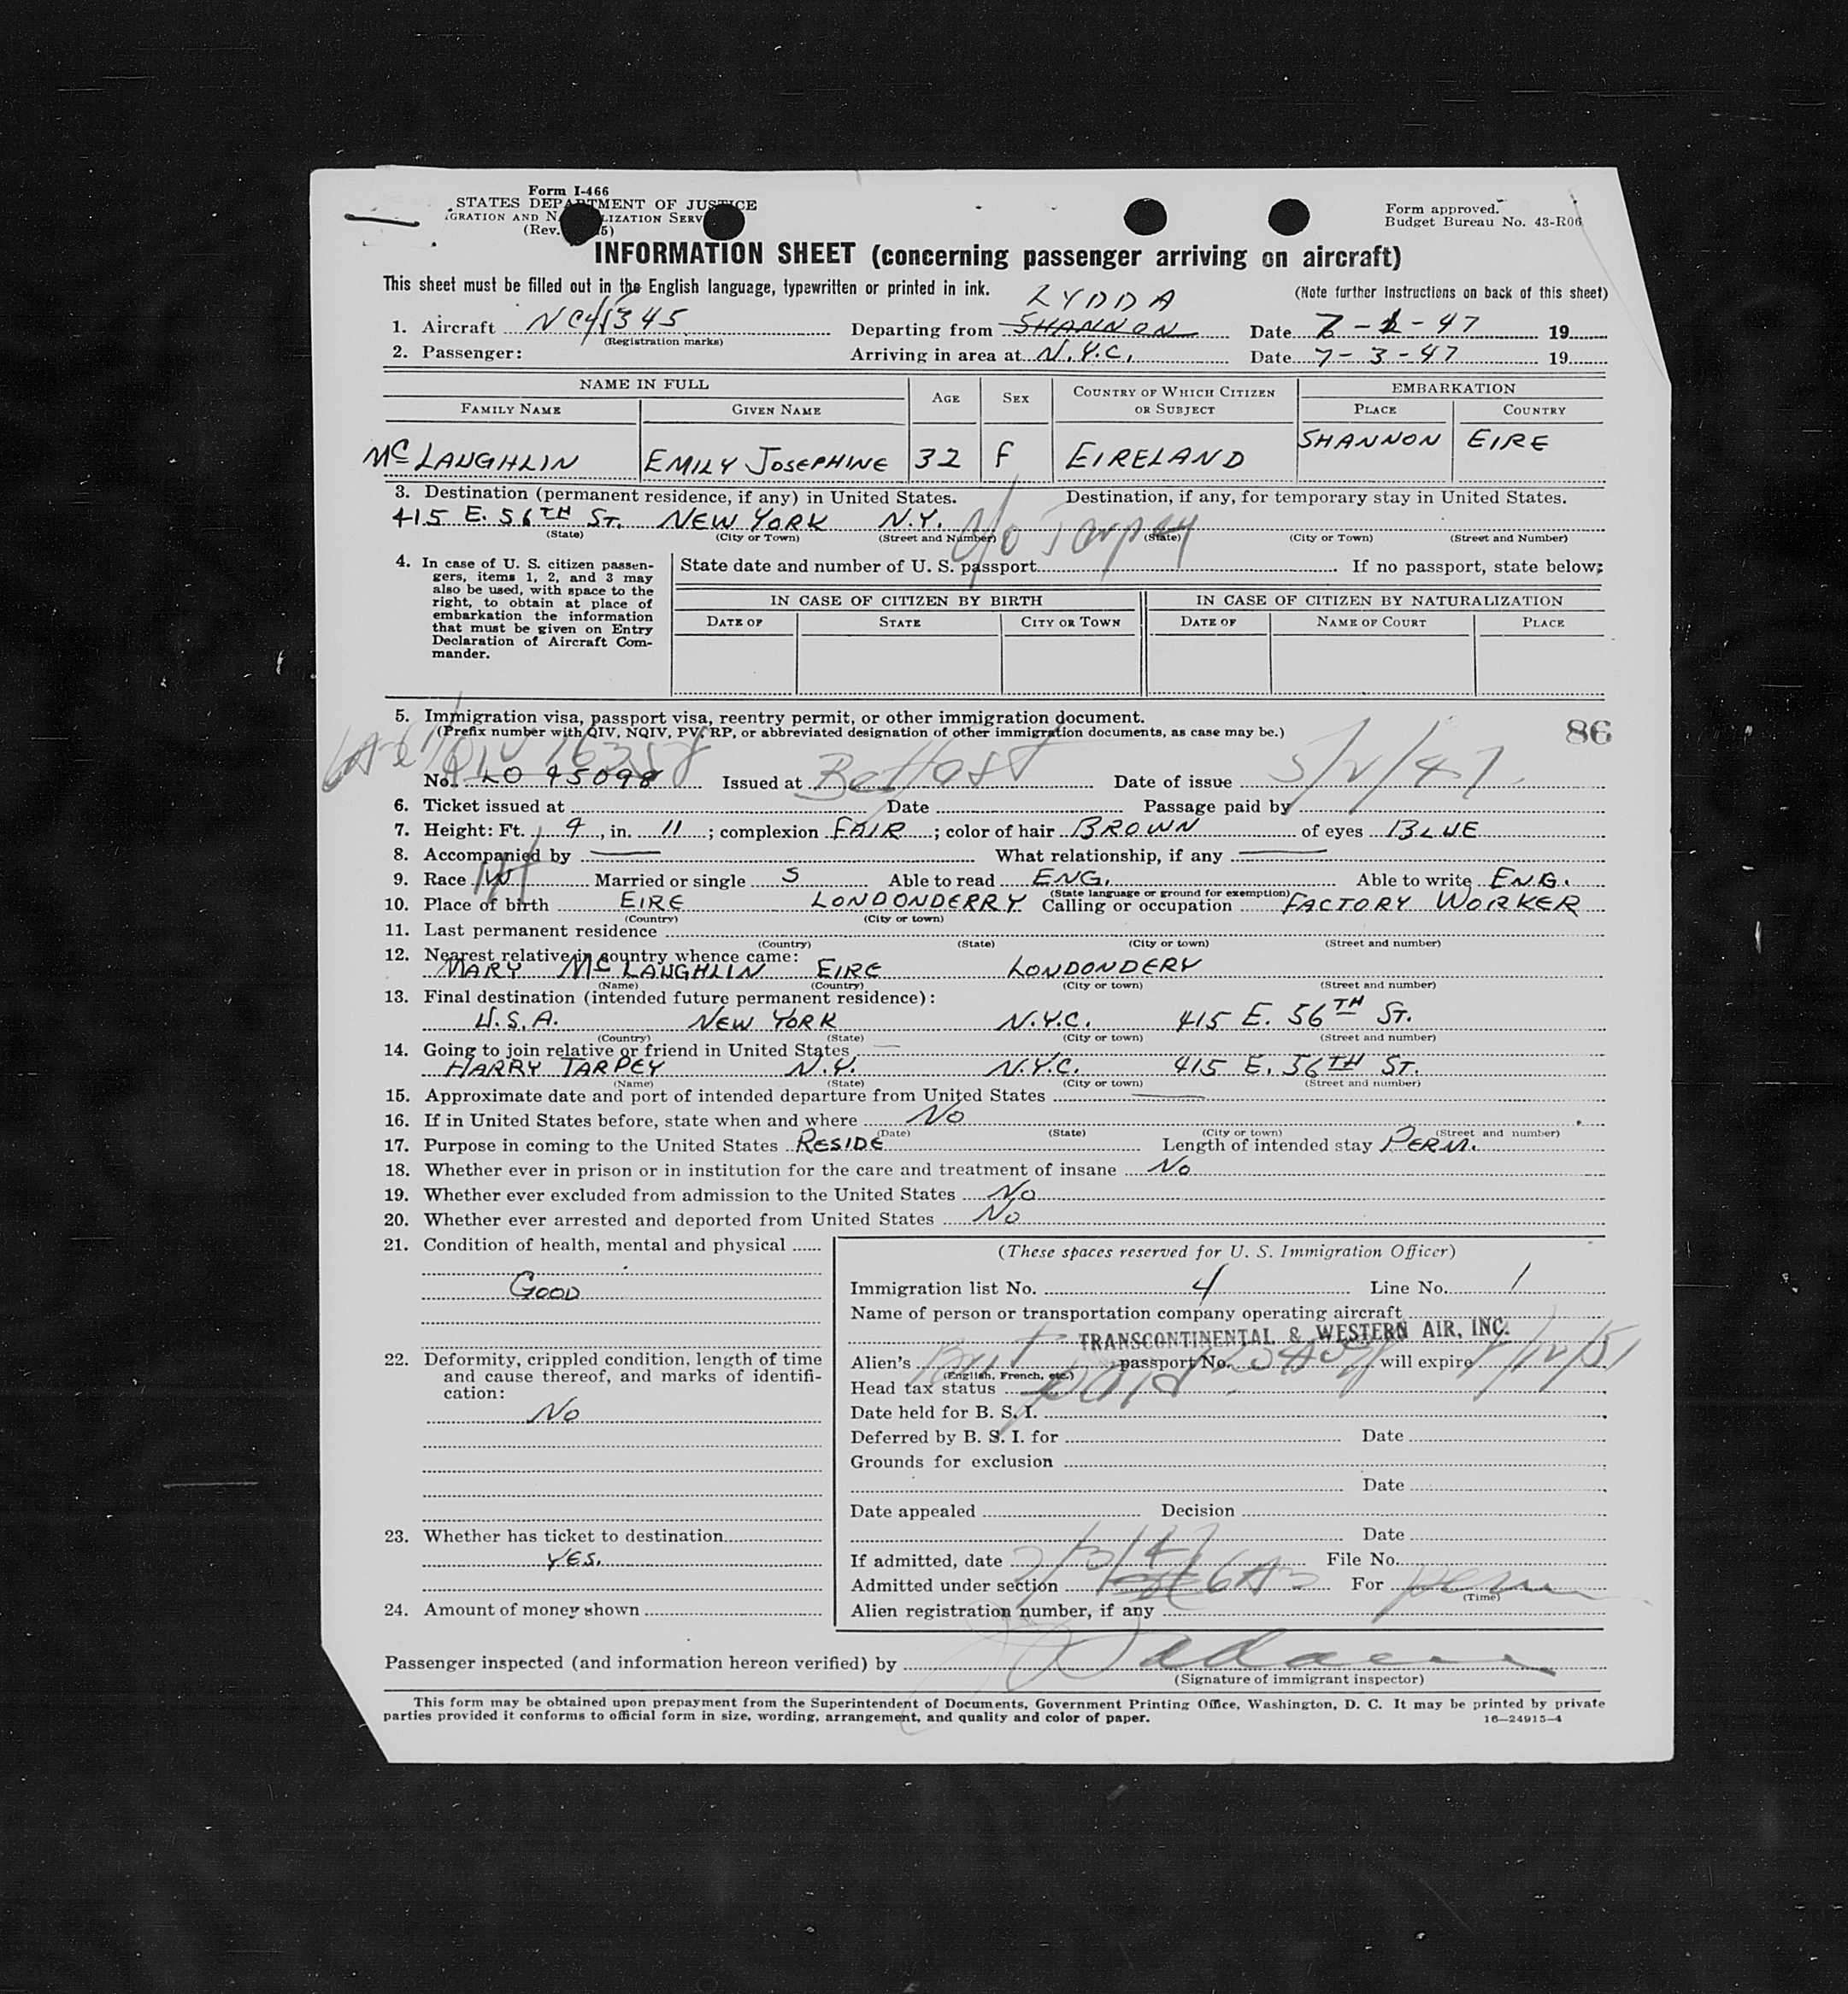 Form I-466
STATES DEPARTMENT OF JUSTICE
IGRATION AND NA LIZATION SERV
(Rev. 5)
Form approved.
Budget Bureau No. 43-R06
INFORMATION SHEET (concerning passenger arriving on aircraft)
This sheet must be filled out in the English language, typewritten or printed in ink.
(Note further instructions on back of this sheet)
LYDDA
1. Aircraft NC45345 Departing from SHANNON Date 7-2-47 19
(Registration marks)
2. Passenger: Arriving in area at N.Y.C. Date 7-3-47 19
NAME IN FULL AGE SEX COUNTRY OF WHICH CITIZEN OR SUBJECT EMBARKATION
FAMILY NAME GIVEN NAME PLACE COUNTRY
McLAUGHLIN EMILY JOSEPHINE 32 F EIRELAND SHANNON EIRE
3. Destination (permanent residence, if any) in United States. Destination, if any, for temporary stay in United States.
415 E. 56TH ST. NEW YORK N.Y. c/o Tarpey
(State) (City or Town) (Street and Number) (State) (City or Town) (Street and Number)
4. In case of U. S. citizen passen-
gers, items 1, 2, and 3 may
also be used, with space to the
right, to obtain at place of
embarkation the information
that must be given on Entry
Declaration of Aircraft Com-
mander.
State date and number of U. S. passport If no passport, state below:
IN CASE OF CITIZEN BY BIRTH IN CASE OF CITIZEN BY NATURALIZATION
DATE OF STATE CITY OR TOWN DATE OF NAME OF COURT PLACE
5. Immigration visa, passport visa, reentry permit, or other immigration document.
(Prefix number with QIV, NQIV, PV, RP, or abbreviated designation of other immigration documents, as case may be.)
86
QIV 16358
No. LO 45098 Issued at Belfast Date of issue 5/2/47
6. Ticket issued at Date Passage paid by
7. Height: Ft. 4, in. 11; complexion FAIR; color of hair BROWN of eyes BLUE
8. Accompanied by What relationship, if any
9. Race W Married or single S Able to read ENG. Able to write ENG.
(State language or ground for exemption)
10. Place of birth EIRE LONDONDERRY Calling or occupation FACTORY WORKER
(Country) (City or town)
11. Last permanent residence
(Country) (State) (City or town) (Street and number)
12. Nearest relative in country whence came:
MARY McLAUGHLIN EIRE LONDONDERY
(Name) (Country) (City or town) (Street and number)
13. Final destination (intended future permanent residence):
U.S.A. NEW YORK N.Y.C. 415 E. 56TH ST.
(Country) (State) (City or town) (Street and number)
14. Going to join relative or friend in United States
HARRY TARPEY N.Y. N.Y.C. 415 E. 56TH ST.
(Name) (State) (City or town) (Street and number)
15. Approximate date and port of intended departure from United States
16. If in United States before, state when and where No
(Date) (State) (City or town) (Street and number)
17. Purpose in coming to the United States RESIDE Length of intended stay PERM.
18. Whether ever in prison or in institution for the care and treatment of insane No
19. Whether ever excluded from admission to the United States No
20. Whether ever arrested and deported from United States No
21. Condition of health, mental and physical
GOOD
22. Deformity, crippled condition, length of time
and cause thereof, and marks of identifi-
cation:
No
23. Whether has ticket to destination
YES.
24. Amount of money shown
(These spaces reserved for U. S. Immigration Officer)
Immigration list No. 4 Line No. 1
Name of person or transportation company operating aircraft
TRANSCONTINENTAL & WESTERN AIR, INC.
Alien's Brit passport No. will expire
(English, French, etc.)
Head tax status paid
Date held for B. S. I.
Deferred by B. S. I. for Date
Grounds for exclusion
Date
Date appealed Decision
Date
If admitted, date 7/3/47 File No.
Admitted under section 6A3 For perm
(Time)
Alien registration number, if any
Passenger inspected (and information hereon verified) by
(Signature of immigrant inspector)
This form may be obtained upon prepayment from the Superintendent of Documents, Government Printing Office, Washington, D. C. It may be printed by private
parties provided it conforms to official form in size, wording, arrangement, and quality and color of paper.
16—24915-4